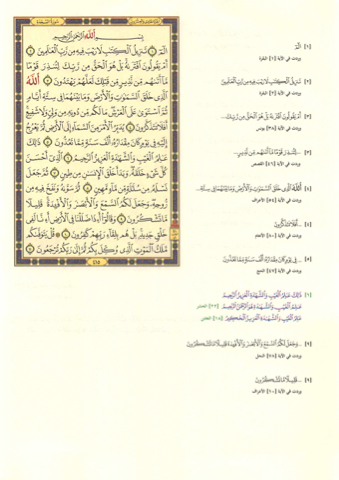 سورة السجدة
بسم الله الرحمن الرحيم
الٓمٓ ١ تنزيل الكتٰب لا ريب فيه من رب العٰلمين ٢
أم يقولون افترىٰه بل هو الحق من ربك لتنذر قوما
ما أتىٰهم من نذير من قبلك لعلهم يهتدون ٣ الله
الذي خلق السمٰوٰت والأرض وما بينهما في ستة أيام
ثم استوىٰ على العرش ما لكم من دونه من ولي ولا شفيع
أفلا تتذكرون ٤ يدبر الأمر من السماء إلى الأرض ثم يعرج
إليه في يوم كان مقداره ألف سنة مما تعدون ٥ ذٰلك
عٰلم الغيب والشهٰدة العزيز الرحيم ٦ الذي أحسن
كل شيء خلقه وبدأ خلق الإنسٰن من طين ٧ ثم جعل
نسله من سلٰلة من ماء مهين ٨ ثم سوىٰه ونفخ فيه من
روحه وجعل لكم السمع والأبصٰر والأفـٔدة قليلا
ما تشكرون ٩ وقالوا أءذا ضللنا في الأرض أءنا لفي
خلق جديد بل هم بلقاء ربهم كٰفرون ١٠ قل يتوفىٰكم
ملك الموت الذي وكل بكم ثم إلىٰ ربكم ترجعون ١١
٤١٥
[١] الٓمٓ
وردت في الآية [١] البقرة
[٢] تنزيل الكتٰب لا ريب فيه من رب العٰلمين
وردت في الآية [٢] البقرة
[٣] أم يقولون افترىٰه بل هو الحق من ربك...
وردت في الآية [٣٨] يونس
[٣] ...لتنذر قوما ما أتىٰهم من نذير...
وردت في الآية [٤٦] القصص
[٤] الله الذي خلق السمٰوٰت والأرض وما بينهما في ستة...
وردت في الآية [٥٤] الأعراف
[٤] ...أفلا تتذكرون
وردت في الآية [٨٠] الأنعام
[٥] ...في يوم كان مقداره ألف سنة مما تعدون
وردت في الآية [٤٧] الحج
[٦] ذٰلك عٰلم الغيب والشهٰدة العزيز الرحيم
عٰلم الغيب والشهٰدة هو الرحمٰن الرحيم [٢٢] الحشر
عٰلم الغيب والشهٰدة العزيز الحكيم [١٨] التغابن
[٩] ...وجعل لكم السمع والأبصٰر والأفـٔدة قليلا ما تشكرون
وردت في الآية [٧٨] النحل
[٩] ...قليلا ما تشكرون
وردت في الآية [١٠] الأعراف